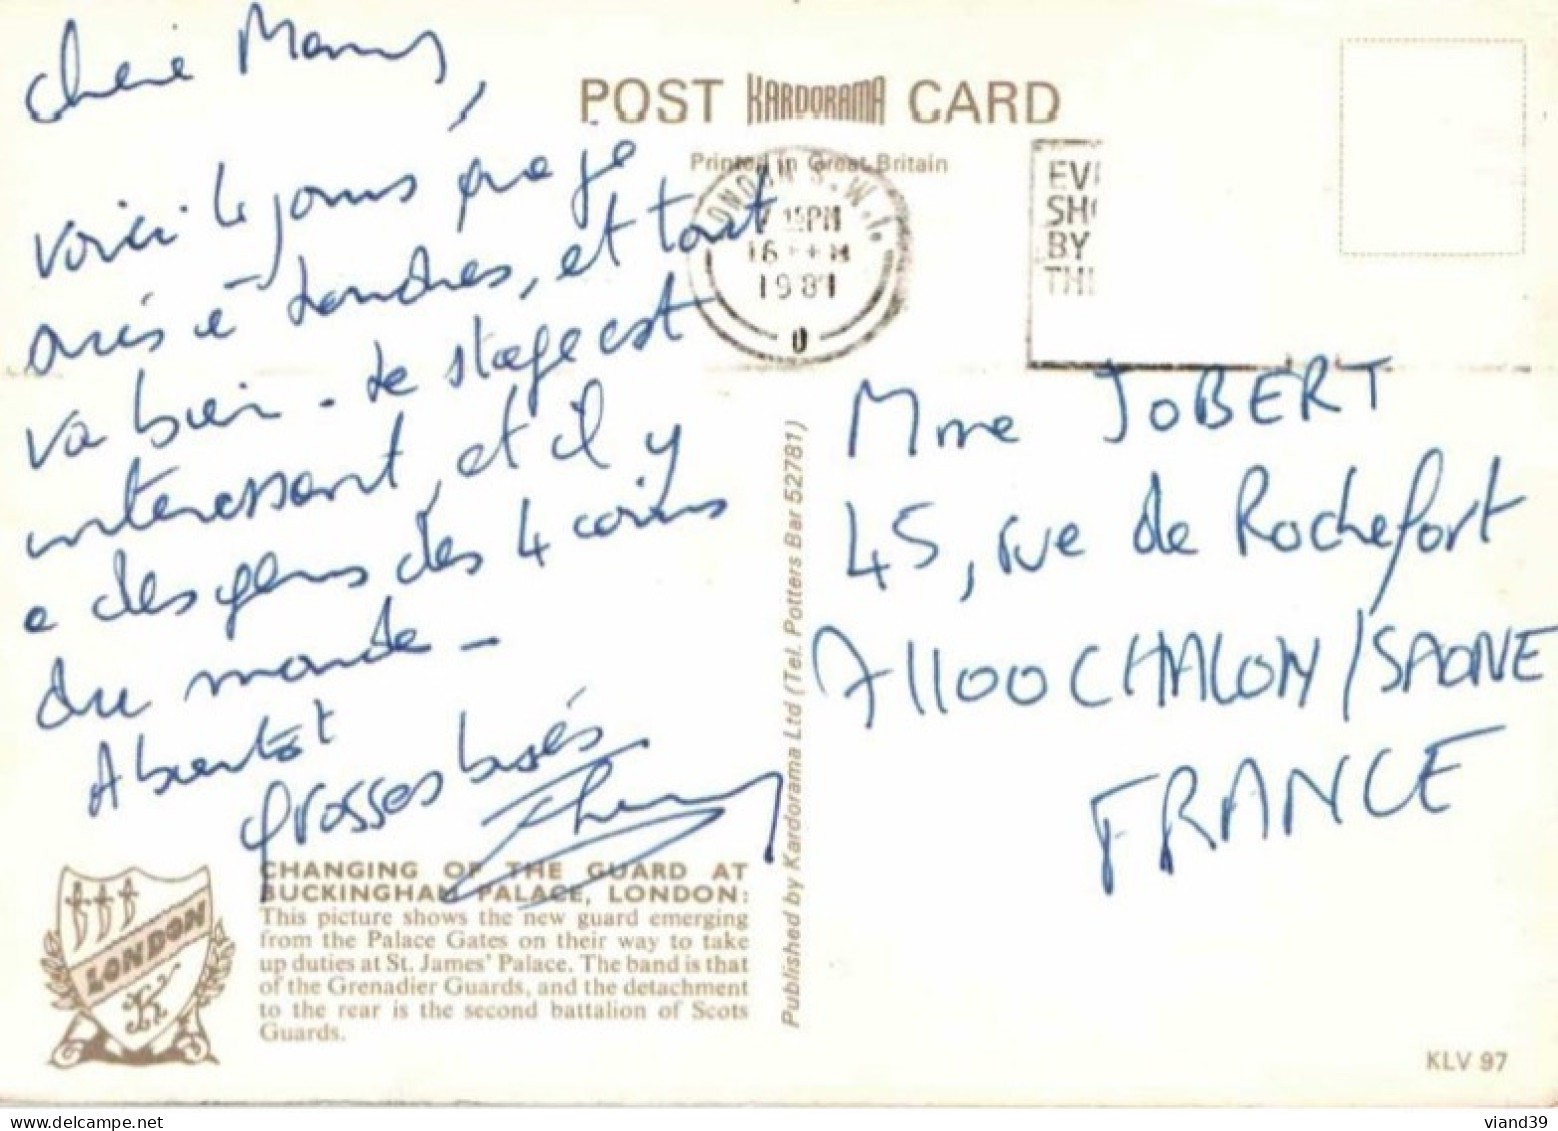 Chérie Mamy,
voici le jours que je
suis à Londres, et tout
va bien - Le stage est
interessant, et il y
a des gens des 4 coins
du monde -
A bientôt
grosses bises
POST KARDORAMA CARD
Printed in Great Britain
LONDON S.W.1.
15PM
16
198
EV
SH
BY
TH
Mme JOBERT
45, rue de Rochefort
71100 CHALON/SAONE
FRANCE
Published by Kardorama Ltd (Tel. Potters Bar 52781)
LONDON
K
CHANGING OF THE GUARD AT
BUCKINGHAM PALACE, LONDON:
This picture shows the new guard emerging
from the Palace Gates on their way to take
up duties at St. James' Palace. The band is that
of the Grenadier Guards, and the detachment
to the rear is the second battalion of Scots
Guards.
KLV 97
viand39